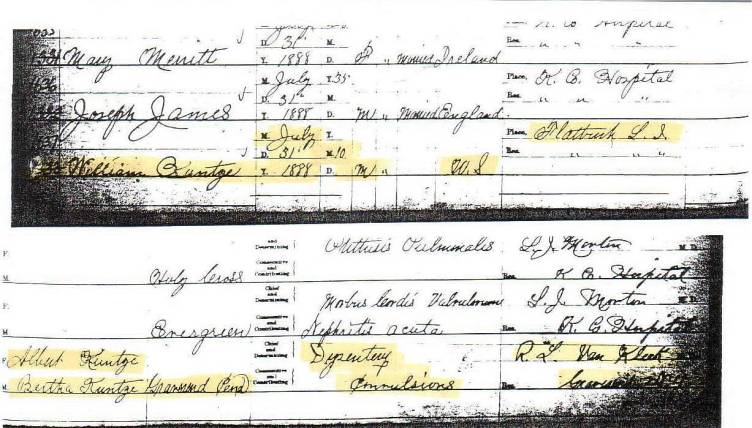 D. 31 M.
1534 Mary Merritt Y. 1888 D. F " Married Ireland Res. " " "
M. July Y. 35 Place, K. C. Hospital
D. 31 M. Res. " " "
Joseph James Y. 1888 D. M " Married England
M. July Y. Place, Flatbush L. I.
D. 31 M. 10 Res. " "
William Kuntze Y. 1888 D. M " U. S
F. and Determining Phthisis Pulmonalis S. J. Morton M. D.
M. Holy Cross Consecutive and Contributing Res. K. C. Hospital
F. Chief and Determining Morbus Cordis Valvulorum S. J. Morton M. D.
M. Evergreen Consecutive and Contributing Nephritis acuta Res. K. C. Hospital
F. Albert Kuntze Chief and Determining Dysentery R. L. Van Kleek
M. Bertha Kuntze Consecutive and Contributing Convulsions Res.